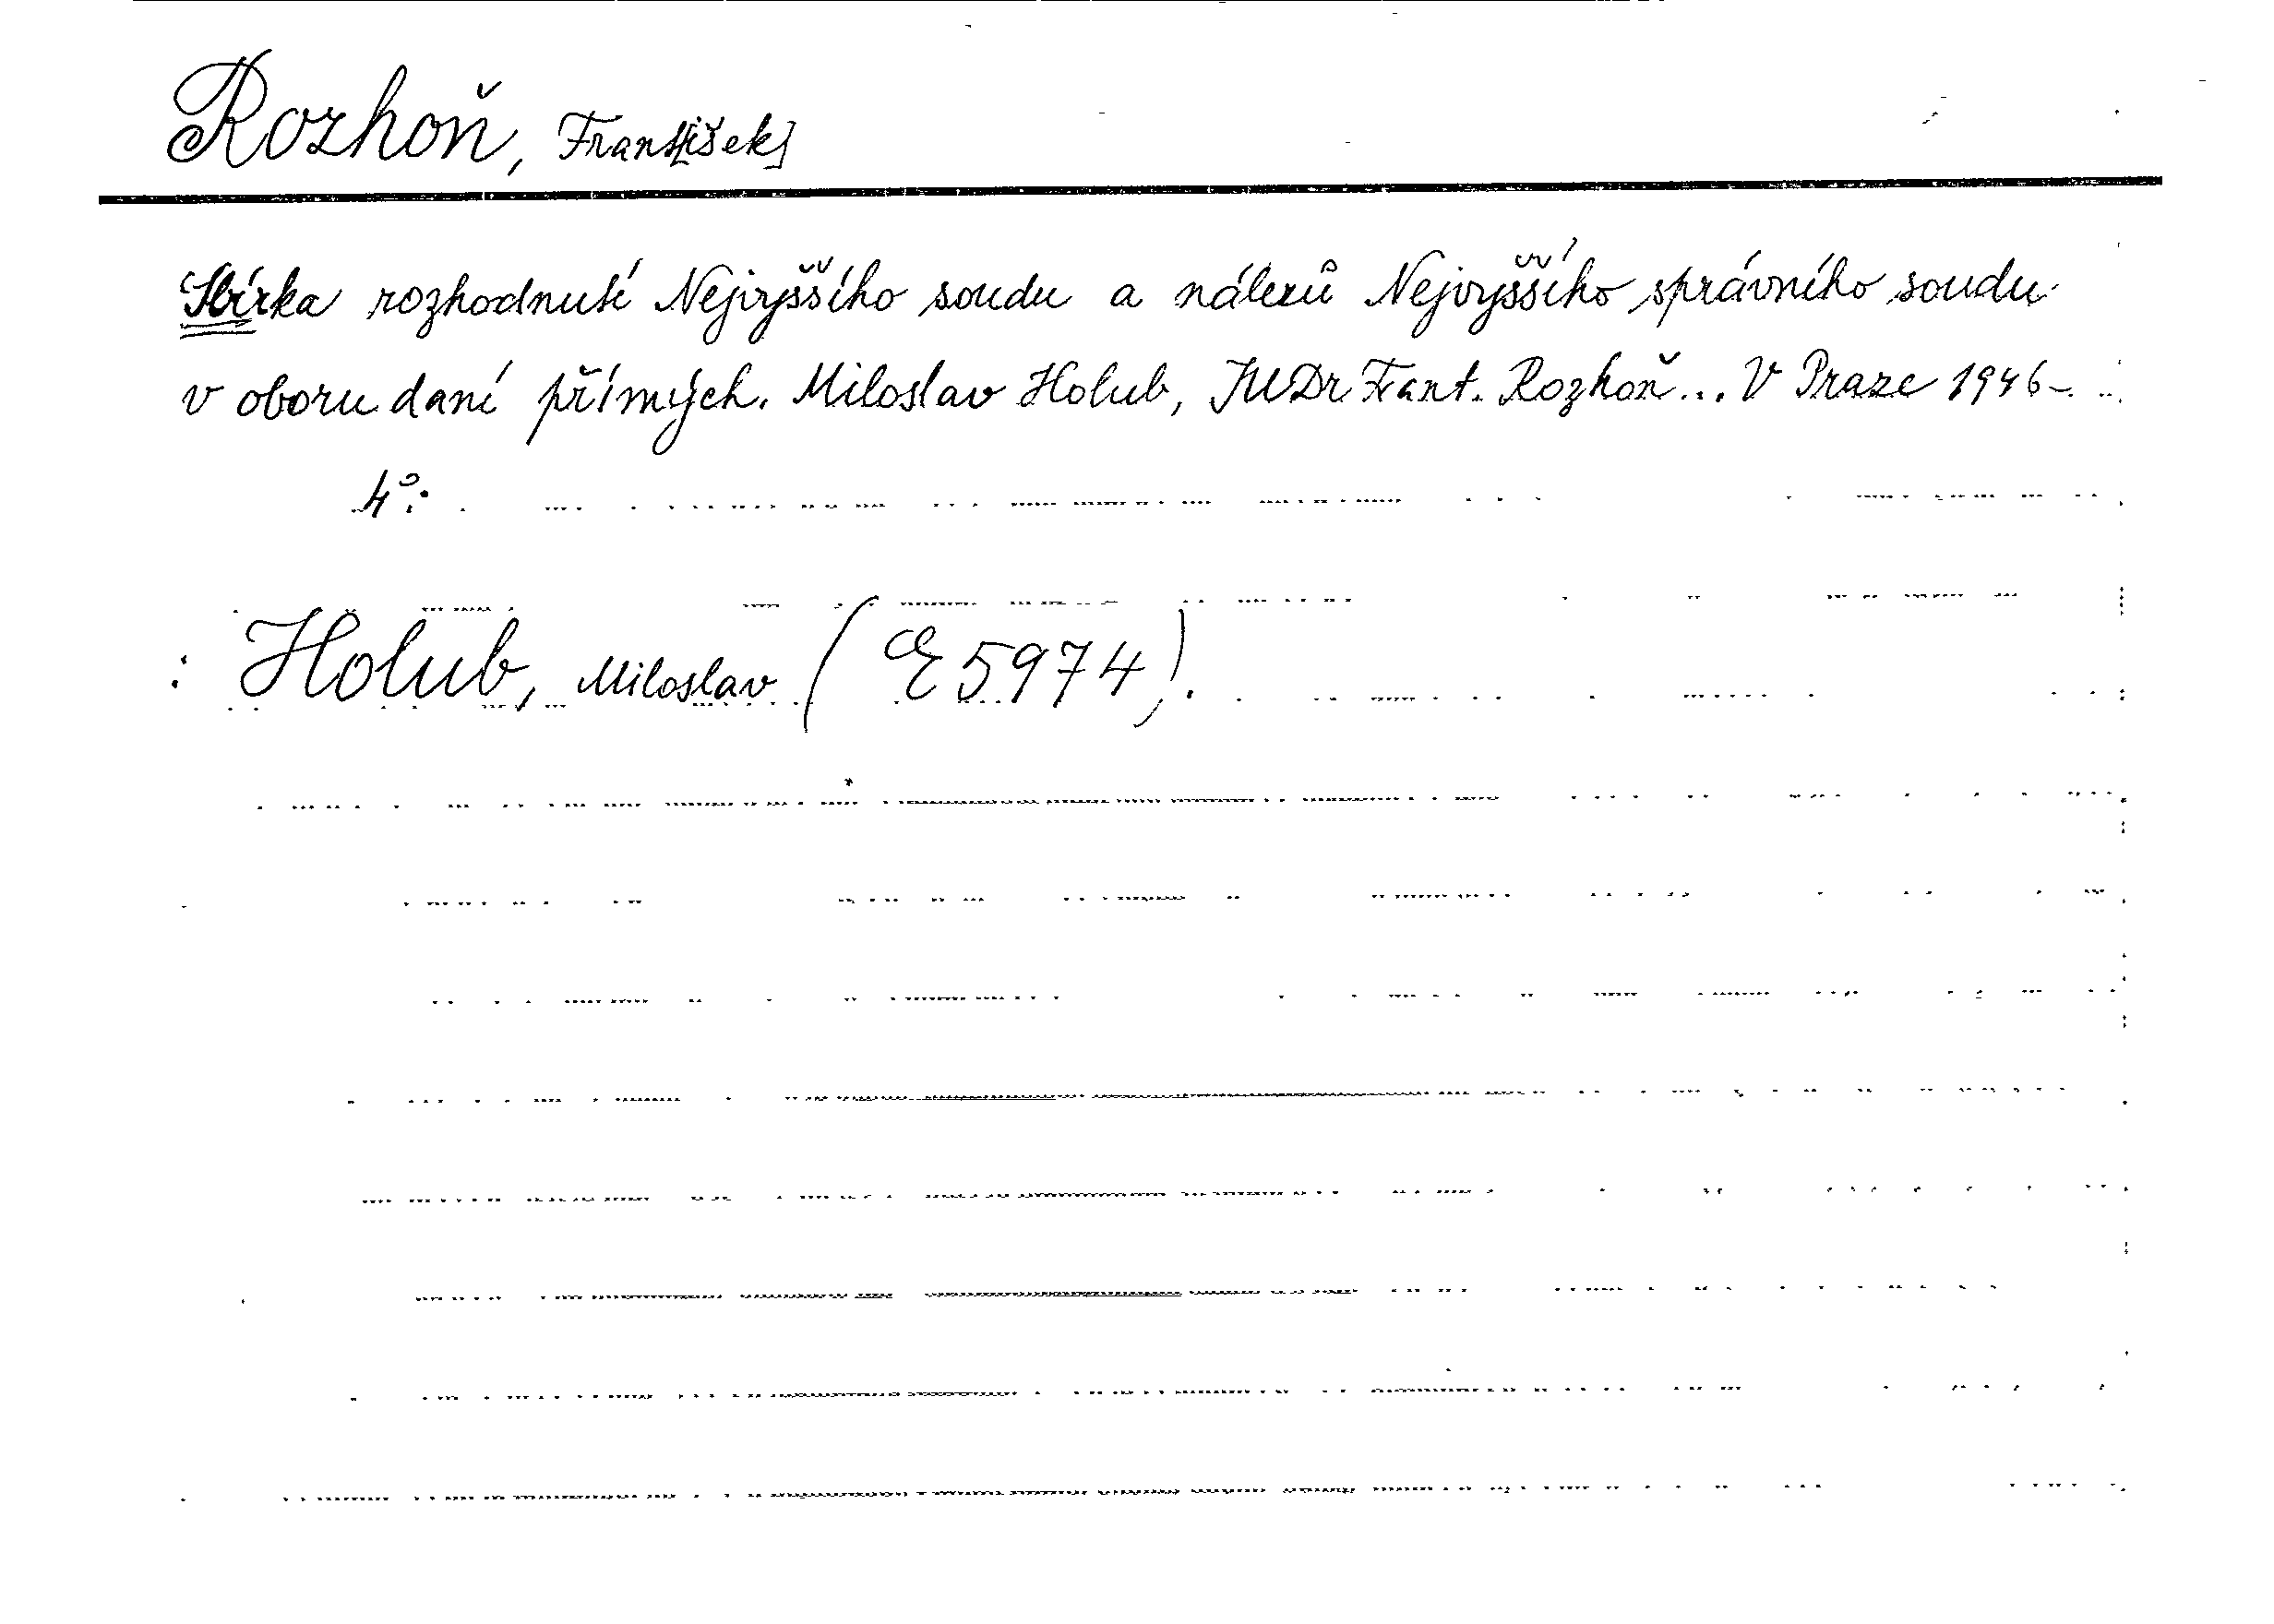 Rozhoň, Frant[išek]
Sbírka rozhodnutí Nejvyššího soudu a nálezů Nejvyššího správního soudu
v oboru daní přímých. Miloslav Holub, JUDr Frant. Rozhoň... V Praze 1946-.
4°.
: Holub, Miloslav (E 5974).